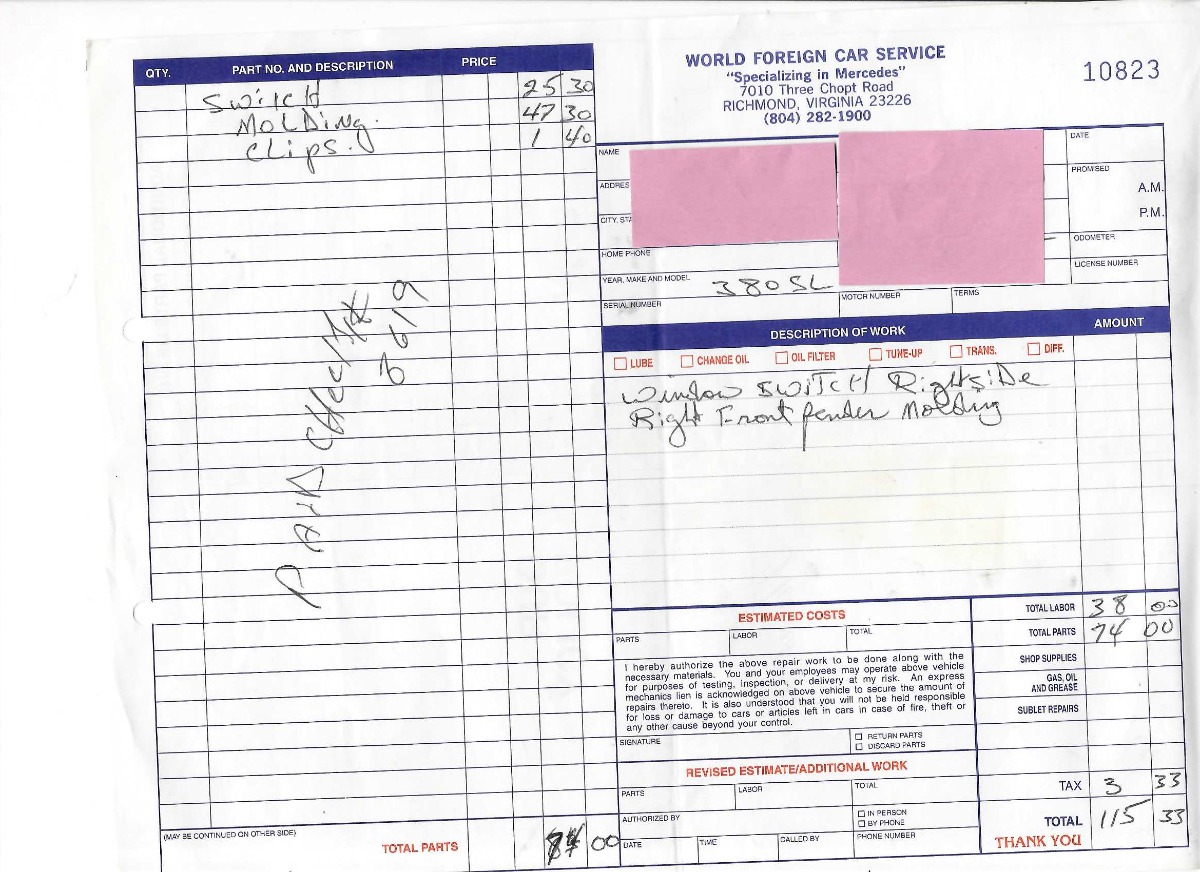 QTY. PART NO. AND DESCRIPTION PRICE
Switch 25 30
Molding. 47 30
Clips. 1 40
PAID CHECK#
3619
(MAY BE CONTINUED ON OTHER SIDE)
TOTAL PARTS 74 00
WORLD FOREIGN CAR SERVICE
"Specializing in Mercedes"
7010 Three Chopt Road
RICHMOND, VIRGINIA 23226
(804) 282-1900
10823
NAME
DATE
ADDRES
PROMISED
A.M.
P.M.
CITY, STA
ODOMETER
HOME PHONE
LICENSE NUMBER
YEAR, MAKE AND MODEL 380SL
SERIAL NUMBER MOTOR NUMBER TERMS
DESCRIPTION OF WORK AMOUNT
LUBE CHANGE OIL OIL FILTER TUNE-UP TRANS. DIFF.
Window Switch Rightside
Right Front fender Molding
ESTIMATED COSTS
PARTS LABOR TOTAL
I hereby authorize the above repair work to be done along with the
necessary materials. You and your employees may operate above vehicle
for purposes of testing, inspection, or delivery at my risk. An express
mechanics lien is acknowledged on above vehicle to secure the amount of
repairs thereto. It is also understood that you will not be held responsible
for loss or damage to cars or articles left in cars in case of fire, theft or
any other cause beyond your control.
SIGNATURE
RETURN PARTS
DISCARD PARTS
REVISED ESTIMATE/ADDITIONAL WORK
PARTS LABOR TOTAL
AUTHORIZED BY
IN PERSON
BY PHONE
DATE TIME CALLED BY PHONE NUMBER
TOTAL LABOR 38 00
TOTAL PARTS 74 00
SHOP SUPPLIES
GAS, OIL
AND GREASE
SUBLET REPAIRS
TAX 3 33
TOTAL 115 33
THANK YOU